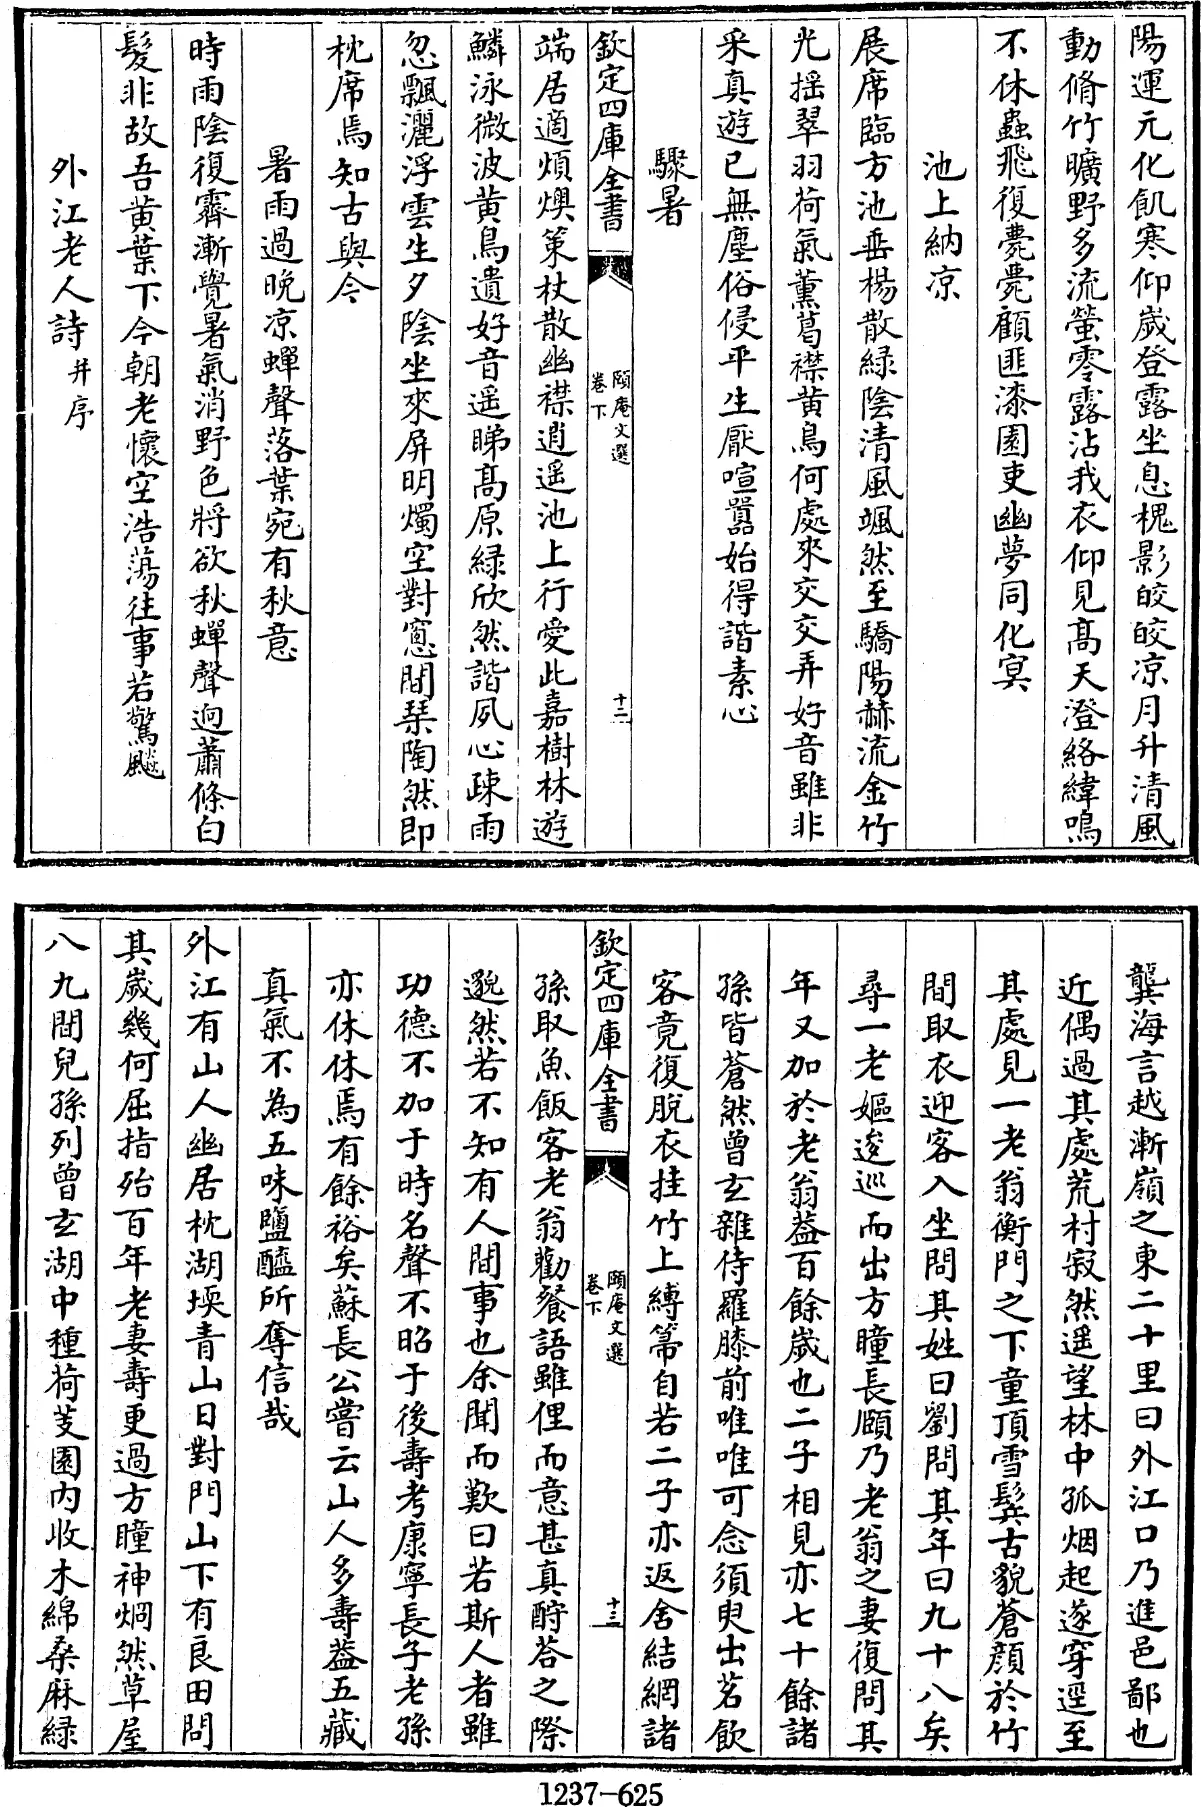 陽運元化飢寒仰歲登露坐息槐影皎皎凉月升清風
動脩竹曠野多流螢零露沾我衣仰見髙天澄絡緯鳴
不休蟲飛復薨薨顧匪漆園吏幽夢同化冥
池上納凉
展席臨方池垂楊散緑陰清風颯然至驕陽赫流金竹
光揺翠羽荷氣薰葛襟黄鳥何處來交交弄好音雖非
采真遊已無塵俗侵平生厭喧囂始得諧素心
驟暑
欽定四庫全書
頤庵文選
卷下
十二
端居適煩燠策杖散幽襟逍遥池上行愛此嘉樹林遊
鱗泳微波黄鳥遺好音遥睇髙原緑欣然諧夙心疎雨
忽飄灑浮雲生夕陰坐來屏明燭空對窻間琹陶然即
枕席焉知古與今
暑雨過晩凉蟬聲落葉宛有秋意
時雨陰復霽漸覺暑氣消野色將欲秋蟬聲逈蕭條白
髪非故吾黄葉下今朝老懷空浩蕩往事若驚飈
外江老人詩并序
龔海言越漸嶺之東二十里曰外江口乃進邑鄙也
近偶過其處荒村寂然遥望林中孤烟起遂穿逕至
其處見一老翁衡門之下童頂雪鬂古貌蒼顔於竹
間取衣迎客入坐問其姓曰劉問其年曰九十八矣
尋一老嫗逡巡而出方瞳長頤乃老翁之妻復問其
年又加於老翁葢百餘歲也二子相見亦七十餘諸
孫皆蒼然曾玄雜侍羅膝前唯唯可念須臾出茗飲
客竟復脱衣挂竹上縛箒自若二子亦返舍結網諸
欽定四庫全書
頤庵文選
卷下
十三
孫取魚飯客老翁勸餐語雖俚而意甚真酧荅之際
邈然若不知有人間事也余聞而歎曰若斯人者雖
功德不加于時名聲不昭于後壽考康寧長子老孫
亦休休焉有餘裕矣蘇長公嘗云山人多壽葢五藏
真氣不為五味鹽醯所奪信哉
外江有山人幽居枕湖堧青山日對門山下有良田問
其歲幾何屈指殆百年老妻壽更過方瞳神烱然草屋
八九間兒孫列曾玄湖中種荷芰園内收木綿桑麻緑
1237-625